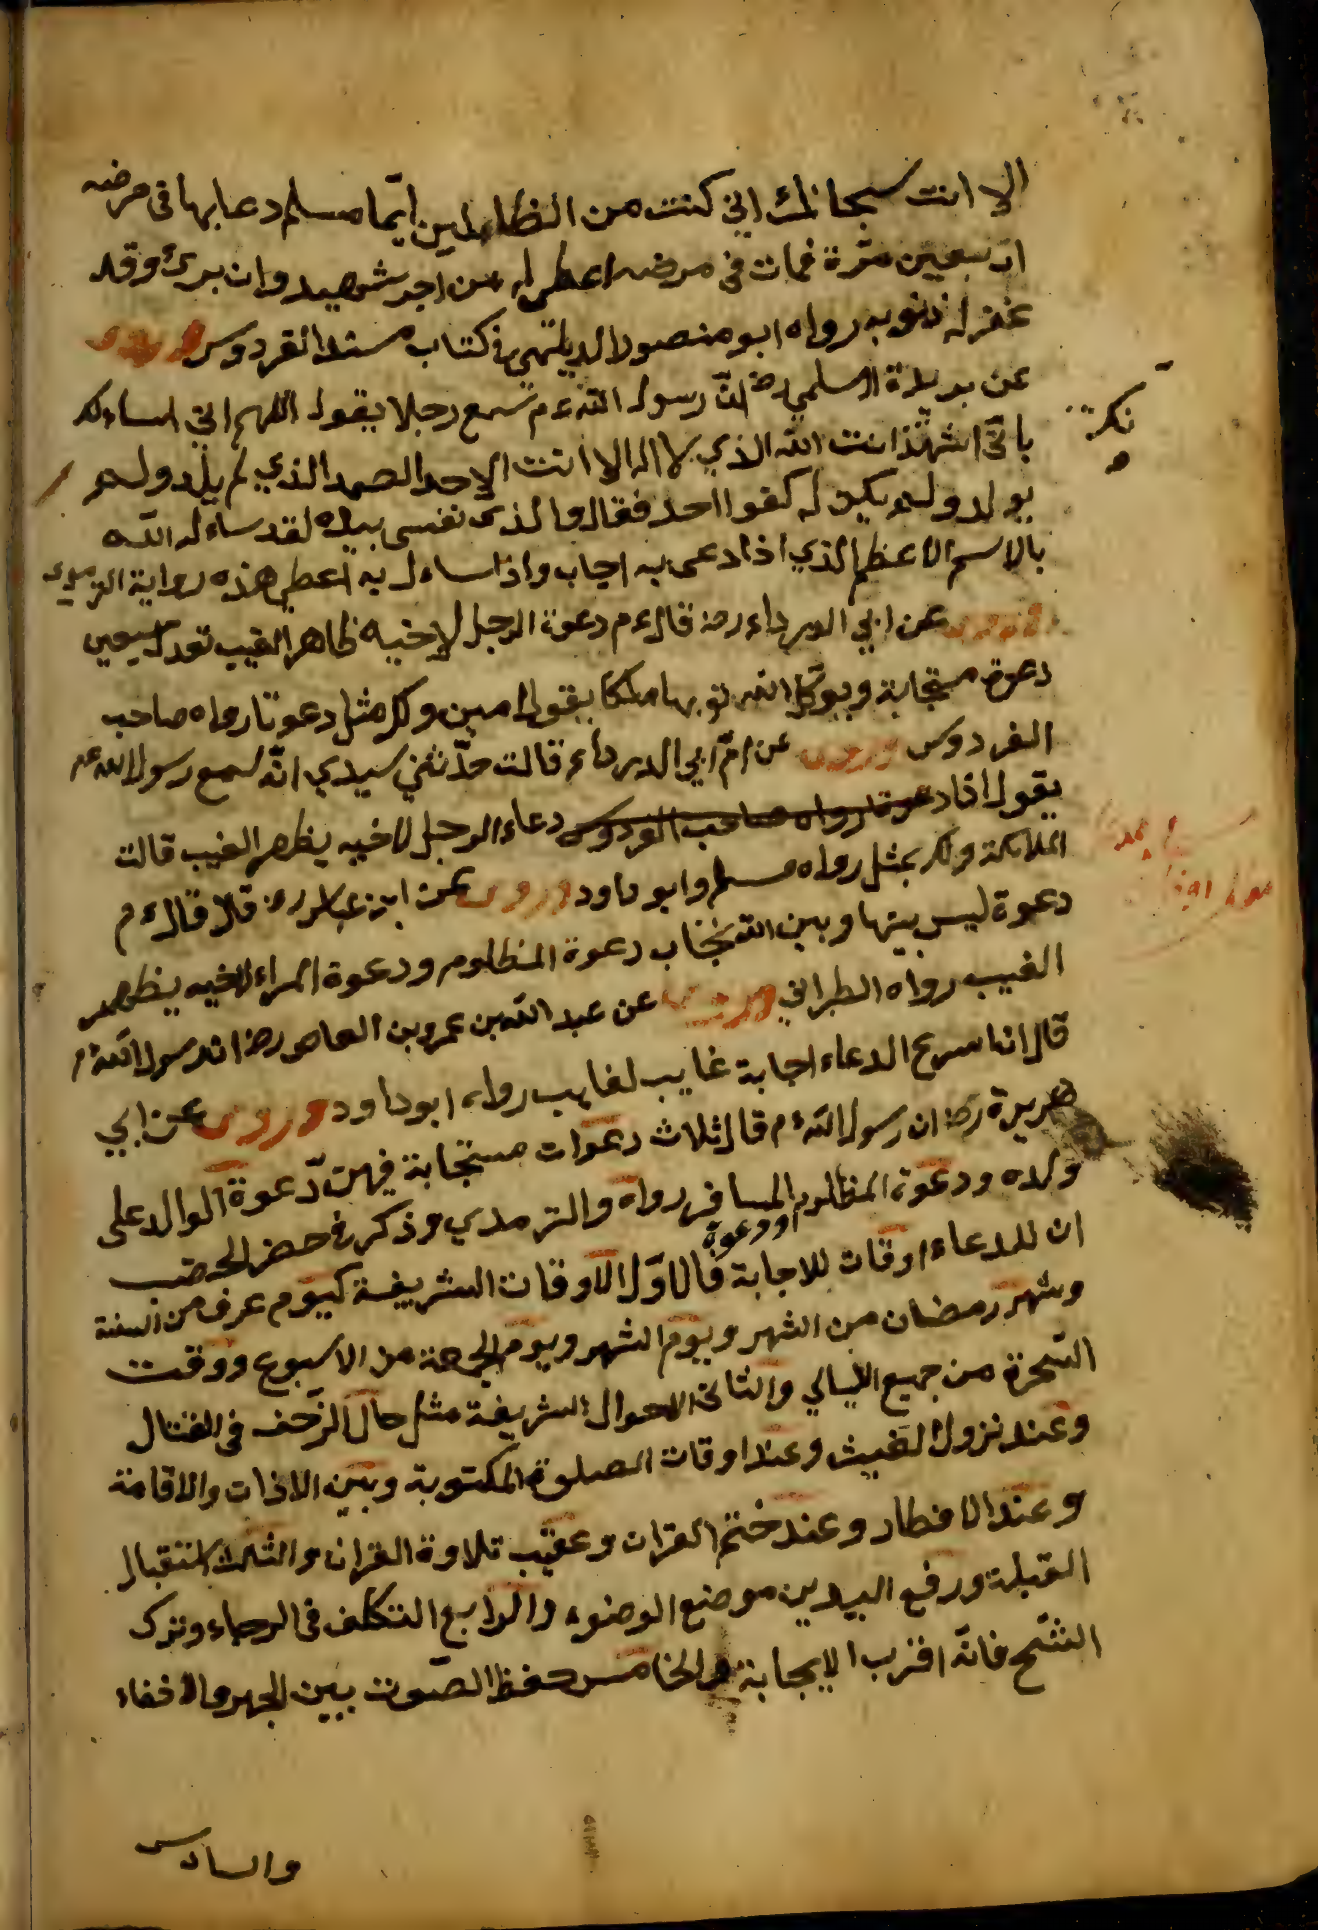 الا انت سبحانك اني كنت من الظالمين ايّما مسلم دعا بها فى مرضه
اربعين مرّة فمات فى مرضه اعطى له من اجر شهيد وان برئ وقد
غفر له ذنوبه رواه ابو منصور الديلمي في كتاب مسند الفردوس وروى
عن بريدة الاسلمي رض انّ رسول الله ءم سمع رجلا يقول اللهم اني اساءلك
بانّي اشهد انت الله الذي لا اله الا انت الاحد الصمد الذي لم يلد ولم
يولد ولم يكن له كفوا احد فقال والذى نفسى بيده لقد ساءل الله
بالاسم الاعظم الذي اذا دعى به اجاب واذا ساءل به اعطى هذه رواية الترمدى
وروى عن ابي الدرداء رض قال ءم دعوة الرجل لاخيه ظاهر الغيب تعدل سبعين
دعوة مستجابة ويوكل الله بها ملكا يقول امين ولك مثل دعوتنا رواه صاحب
الفردوس وروى عن امّ ابي الدرداء قالت حدّثني سيدي انّه سمع رسول الله عم
يقول اذا دعوتنا رواه صاحب الفردوس دعاء الرجل لاخيه يظهر الغيب قالت
الملائكة ولك بمثل رواه مسلم وابو داود وروى عن ابن عباس رض قلا قال ءم
دعوة ليس بينها وبين الله حجاب دعوة المظلوم ودعوة المراء لاخيه يظهر
الغيب رواه الطبراني وروى عن عبد الله بن عمرو بن العاص رض ان رسول الله ءم
قال ان اسرع الدعاء اجابة غايب لغايب رواه ابو داود وروى عن ابي
هريرة رض ان رسول الله ءم قال ثلاث دعوات مستجابة فيهن دّعوة الوالد على
ولده ودعوة المظلوم المسافر رواه والترمدي وذكر في حصن الحصن
او ودعوة
ان للدعاء اوقات للاجابة فالاوّل الاوقات الشريفة كيوم عرف من السنة
وشهر رمضان من الشهر ويوم الشهر ويوم الجمعة من الاسبوع ووقت
السّحرة من جميع الليالي والثانى الاحوال الشريفة مثل حال الزّحف فى القتال
وعند نزول الغيث وعند اوقات الصلوة المكتوبة وبين الاذات والاقامة
وعند الافطار وعند ختم القران وعقيب تلاوة القران والثالث استقبال
القبلة ورفع اليدين موضع الوضوء والرابع التكلف فى الرجاء وترك
الشّح فانّه اقرب الايجابة والخامس حفظ الصّوت بين الجهر والاخفاء
والسادس